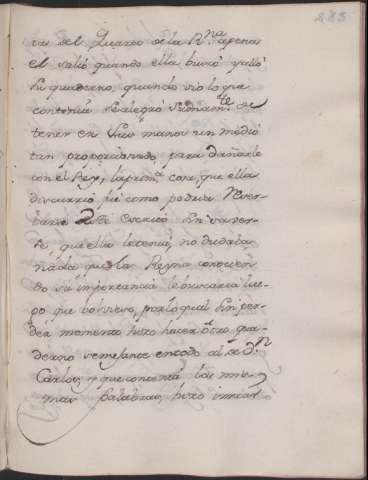 283
tas del Quarto de la Rna apenas
el salió quando ella buscó y alló
su quaderno, quando vio lo que
contenia se alegró sumamte de
tener en sus manos un medio
tan proporcionado para dañarle
con el Rey, la prima cosa, que ella
discurrió fue como podria
este escrito sin
que ella le tenia, no dudaba
nada que la Reyna conocien
do su importancia le buscaria lue-
go que bolviese, por lo qual sin per-
der momento hizo hacer otro qua-
derno semejante en todo al de Dn
Carlos, y que contenia las mis-
mas palabras, hizo imitar